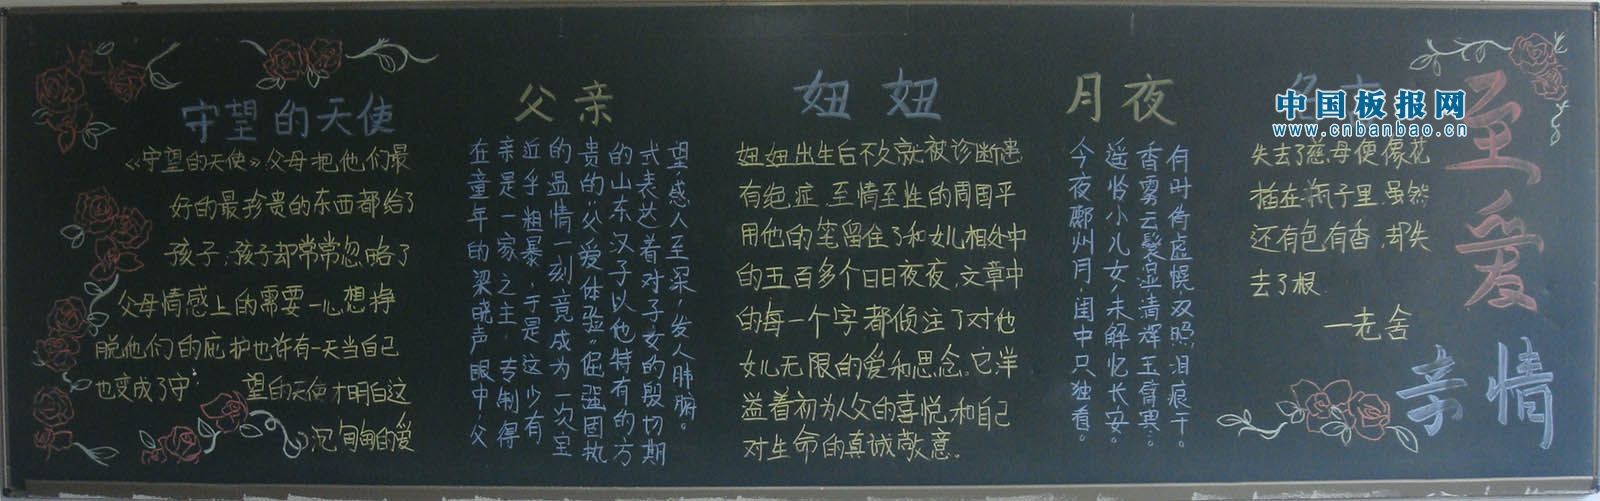 守望的天使
《守望的天使》父母把他们最
好的最珍贵的东西都给了
孩子，孩子却常常忽略了
父母情感上的需要一心想挣
脱他们的庇护也许有一天当自己
也变成了守望的天使才明白这
沉甸甸的爱
父亲
在童年的梁晓声眼中，父
亲是一家之主，专制得
近乎粗暴，于是这少有
的温情一刻竟成为一次宝
贵的“父爱体验”倔强固执
的山东汉子以他特有的方
式表达着对子女的殷切期
望，感人至深，发人肺腑。
妞妞
妞妞出生后不久就被诊断患
有绝症，至情至性的周国平
用他的笔留住了和女儿相处中
的五百多个日日夜夜，文章中
的每一个字都倾注了对他
女儿无限的爱和思念，它洋
溢着初为人父的喜悦，和自己
对生命的真诚敬意。
月夜
今夜鄜州月，闺中只独看。
遥怜小儿女，未解忆长安。
香雾云鬟湿，清辉玉臂寒。
何时倚虚幌，双照泪痕干。
中国板报网
www.cnbanbao.cn
失去了慈母便像花
插在瓶子里，虽然
还有色有香，却失
去了根
—老舍
至爱
亲情